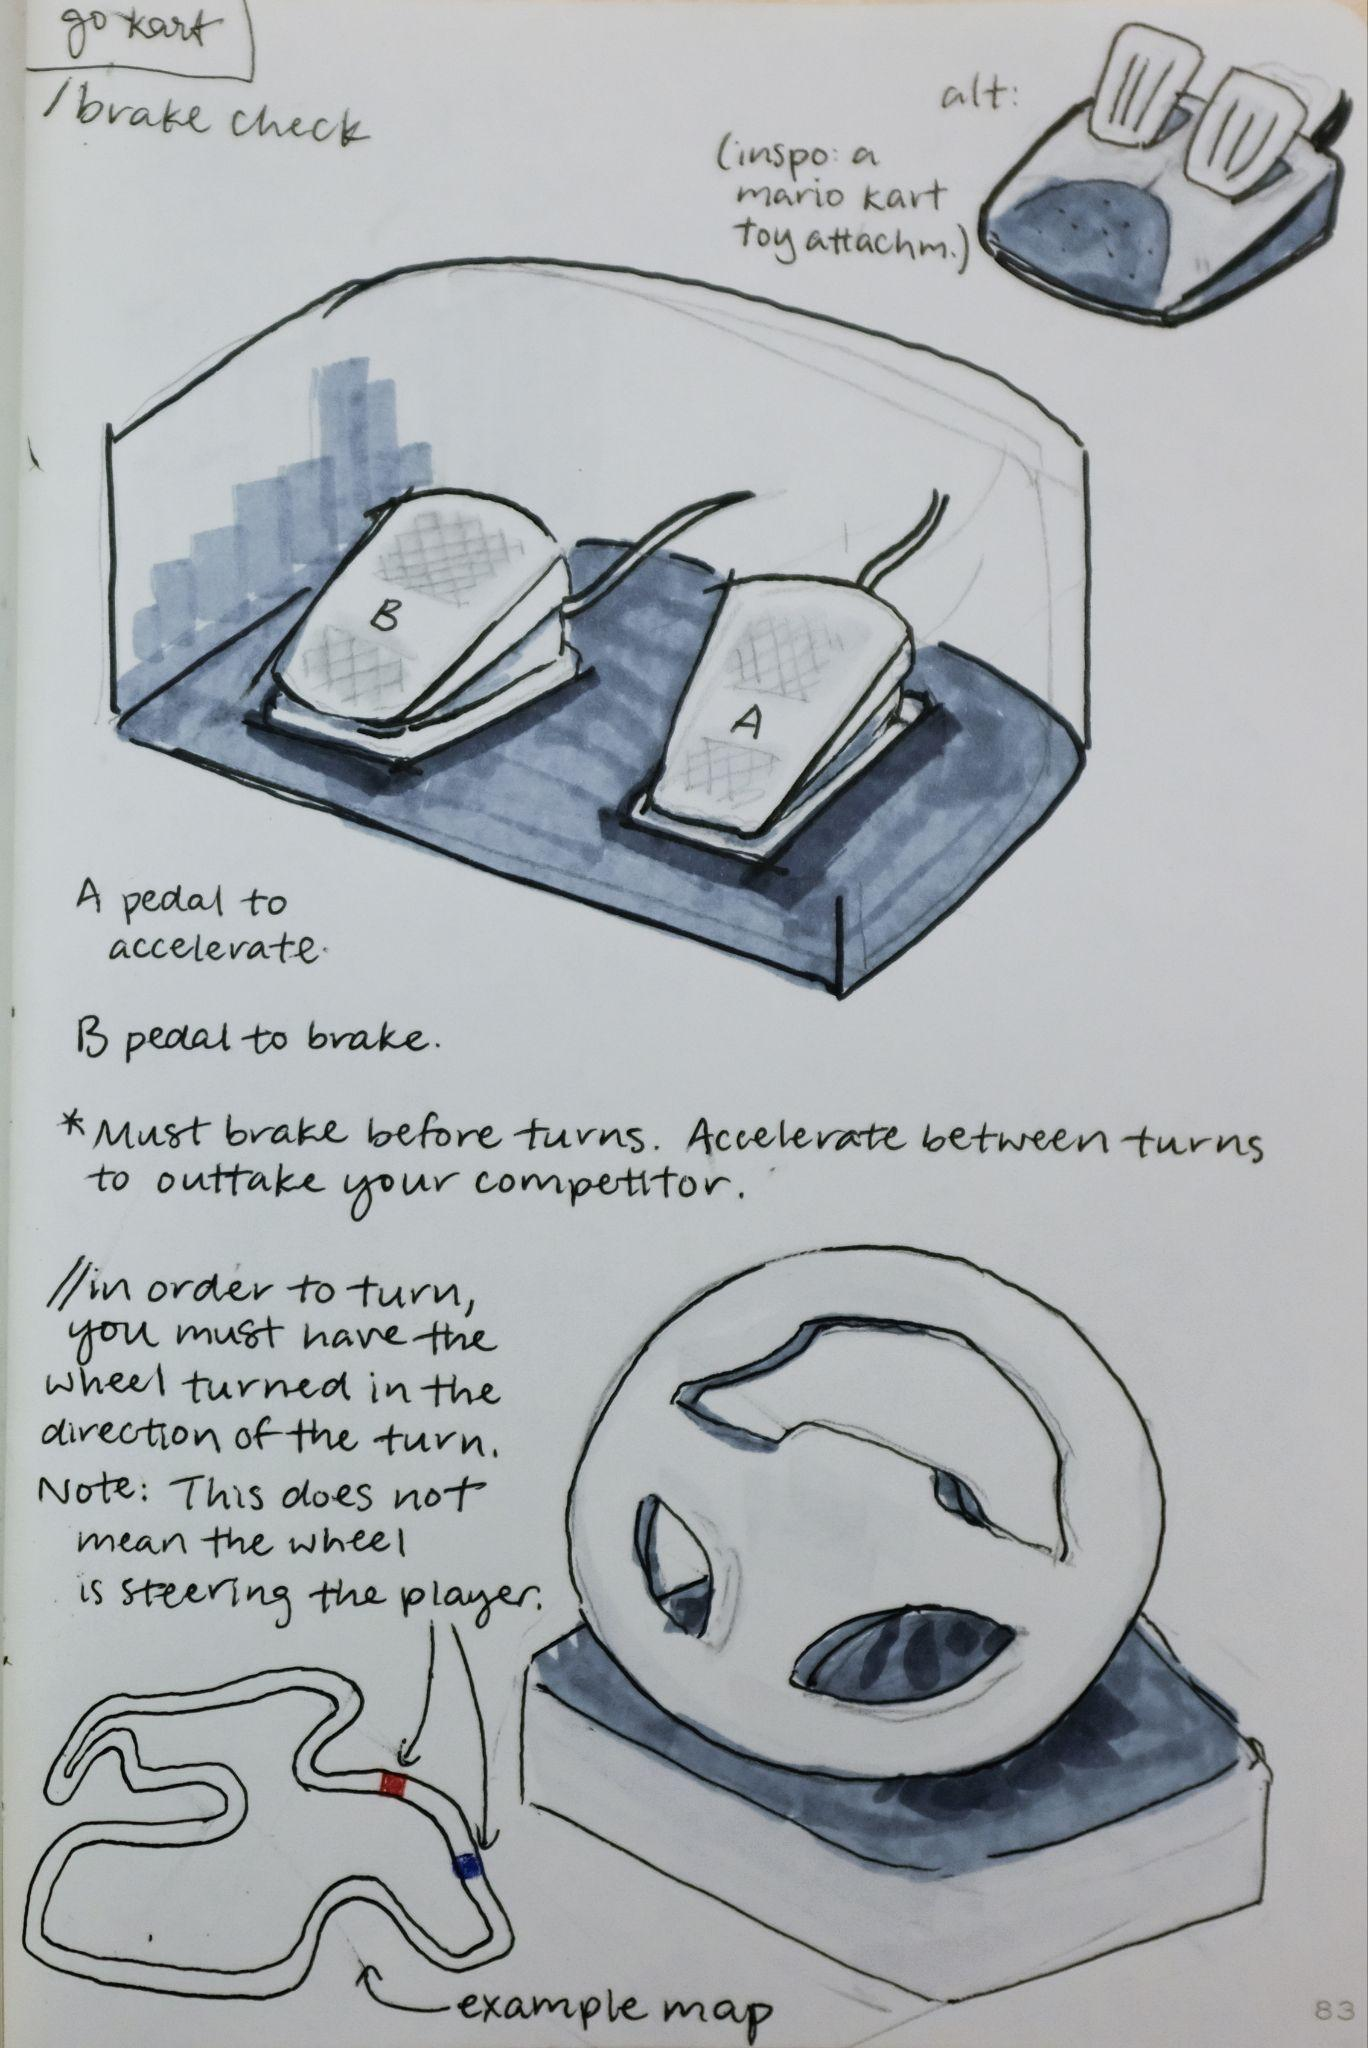 go kart
/brake check
alt:
(inspo: a
mario kart
toy attachm.)
B
A
A pedal to
accelerate.
B pedal to brake.
*Must brake before turns. Accelerate between turns
to outtake your competitor.
//in order to turn,
you must have the
wheel turned in the
direction of the turn.
Note: This does not
mean the wheel
is steering the player.
example map
83